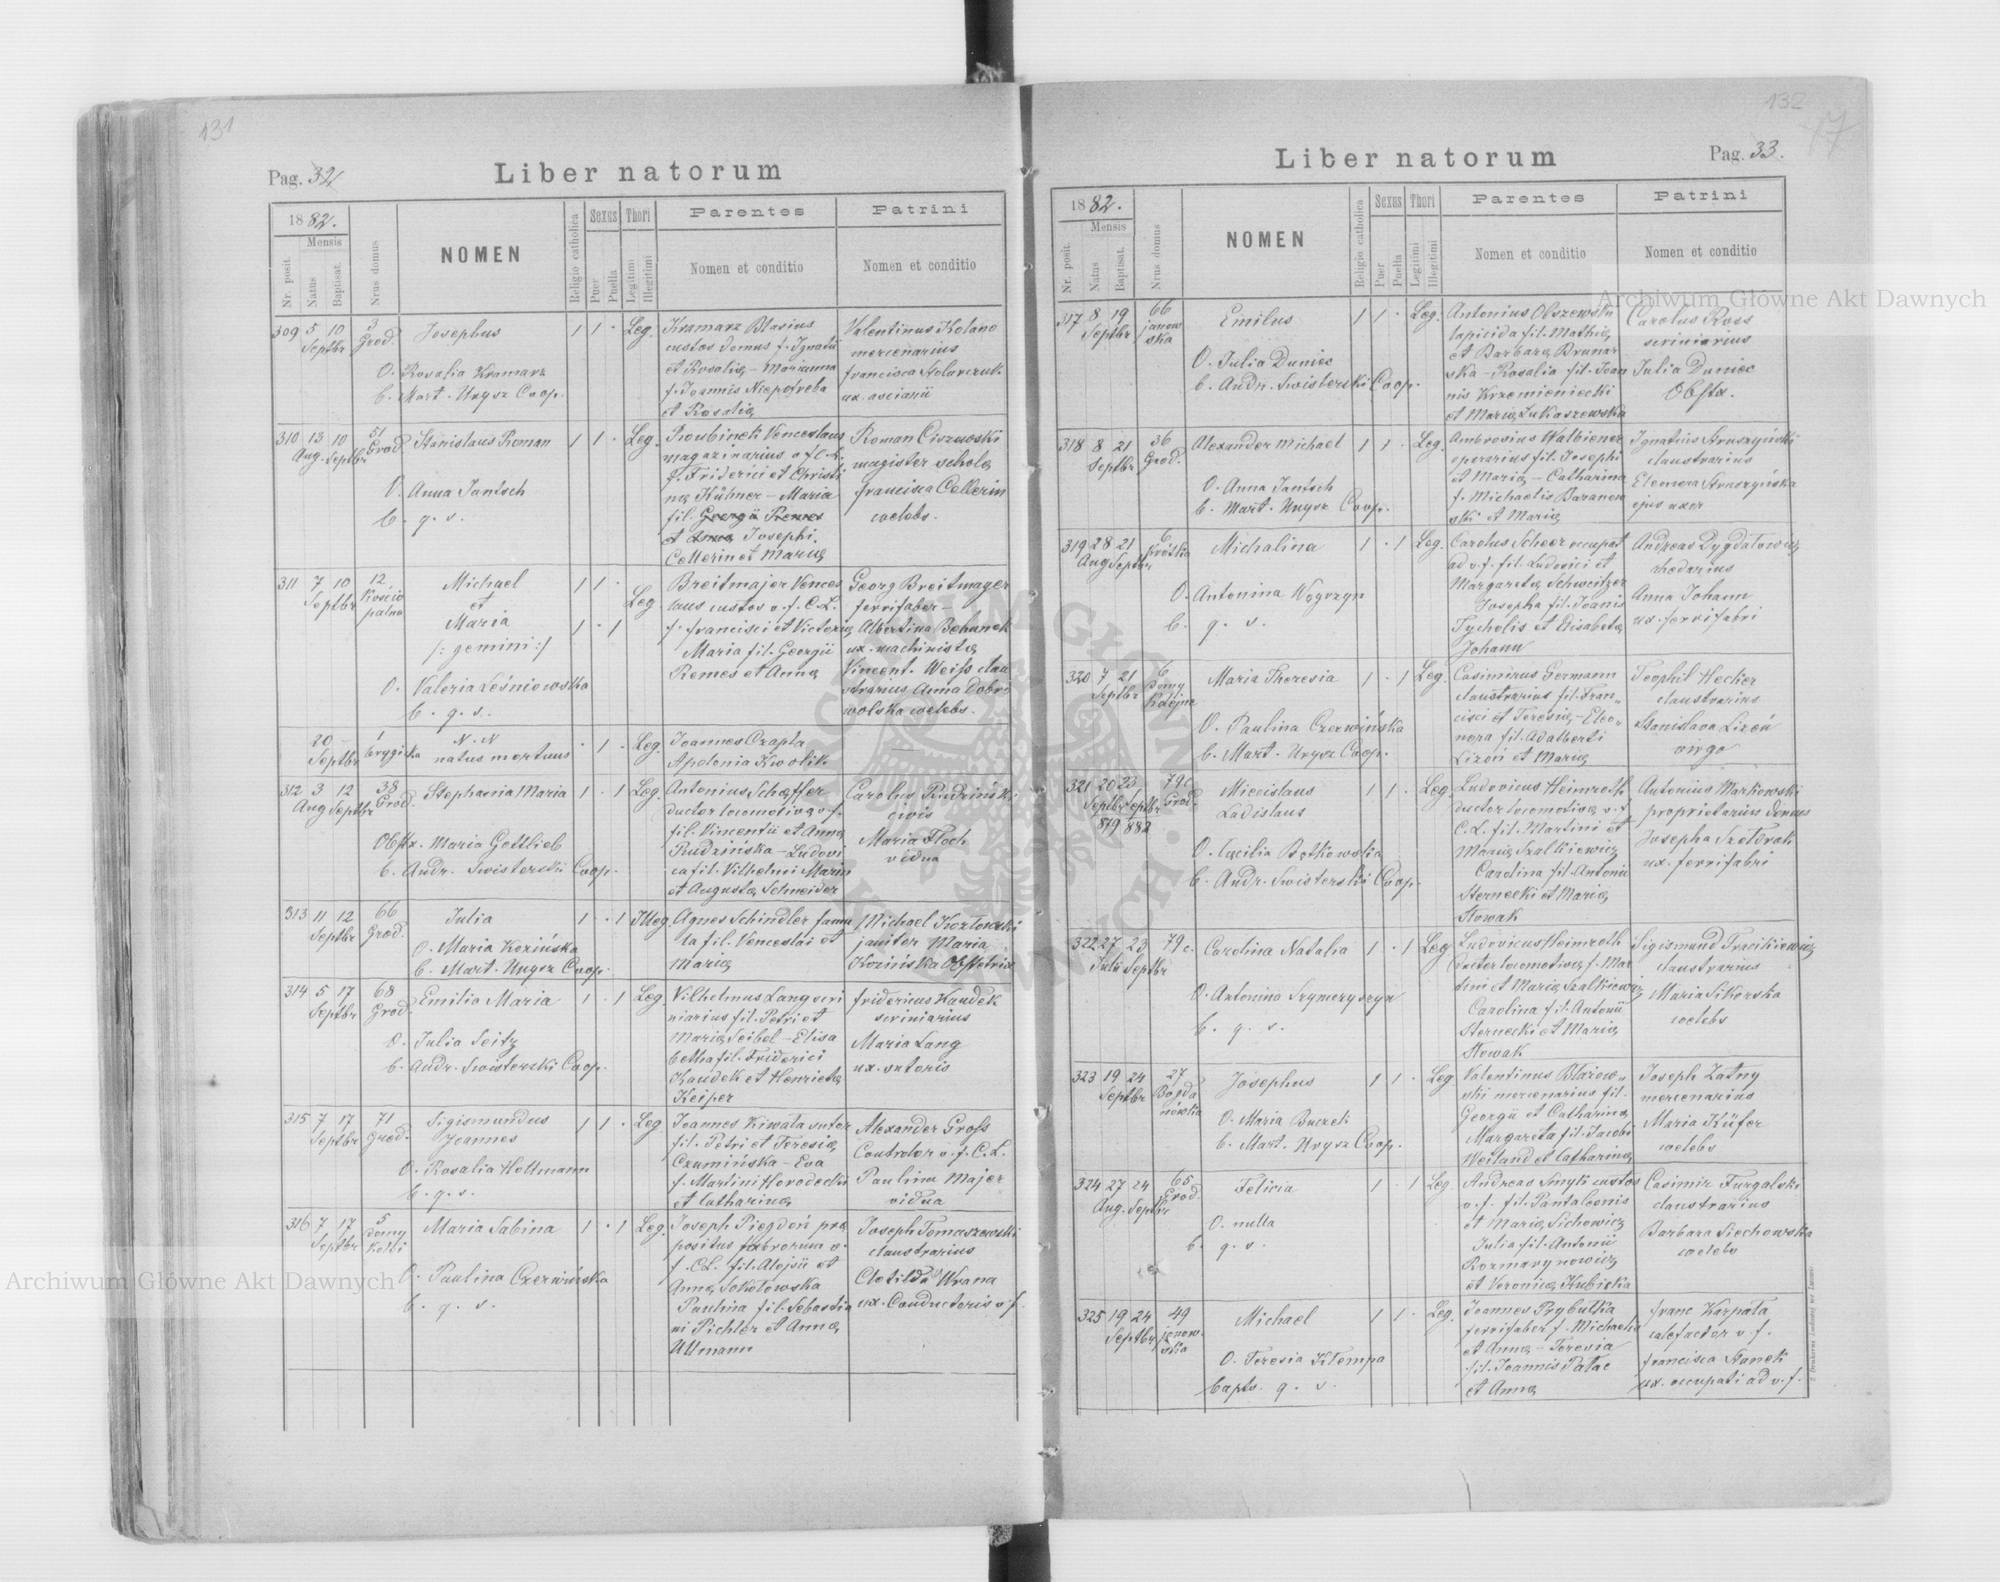 131
Pag. 32
Liber natorum
1882.
Mensis
Nr. posit.
Natus
Baptisat.
Nrus domus
NOMEN
Religio catholica
Sexus
Puer
Puella
Thori
Legitimi
Illegitimi
Parentes
Nomen et conditio
Patrini
Nomen et conditio
309 5 10 Septbr 3 Grod.
Josephus
O. Rosalia Kramarz
b. Mart. Unysz Coop.
1 1 · Leg.
Kramarz Blasius
custos domus f. Ignatii
et Rosalia, – Marianna
f. Joannis Niepotreba
et Rosalia
Valentinus Kolano
mercenarius
Francisca Stolarczuk
ux. asciarii
310 13 Aug. 10 Septbr 51 Grod.
Stanislaus Roman
O. Anna Jantsch
b. q. s.
1 1 · Leg.
Roubinek Venceslaus
magazinarius v. f. C. L.
f. Friderici et Christi
na Kühner – Maria
fil. Georgii Remes
et Anna Josephi
Cellerin et Maria
Roman Ciszewski
magister schola
Francisca Cellerin
coelebs.
311 7 10 Septbr 12
Michael
et
Maria
/: gemini :/
O. Valeria Leśniowska
b. q. s.
1 1 ·
1 · 1
Leg
Breitmajer Vences
laus custos v. f. C. L.
f. Francisci et Victoria
Maria fil. Georgii
Remes et Anna
Georg Breitmayer
ferrifaber –
Albertina Bohunek
ux. machinista
Vincent. Weiss clau
strarius Anna Dobro
wolska coelebs.
20 Septbr –
N. N
natus mortuus
· 1 · Leg
Joannes Czapla
Apolonia Kwolik
—
312 3 Aug 12 Septbr 38 Grod.
Stephania Maria
Obstx. Maria Gottlieb
b. Andr. Swisterski Coop.
1 · 1 Leg.
Antonius Schäffer
ductor locomotiva v. f.
fil. Vincentii et Anna
Rudzińska – Ludovi
ca fil. Vilhelmi Marin
et Augusta Schneider
Carolus Rudziński
civis
Maria Floch
vidua
313 11 12 Septbr 66 Grod.
Julia
O. Maria Kozińska
b. Mart. Unysz Coop.
1 · 1 Illeg.
Agnes Schindler famu
la fil. Venceslai et
Maria
Michael Kozłowski
janitor Maria
Kozińska Obstetrix
314 5 17 Septbr 68 Grod.
Emilia Maria
O. Julia Seitz
b. Andr. Swisterski Coop.
1 · 1 Leg
Vilhelmus Lang scri
niarius fil. Petri et
Maria Seibel – Elisa
betha fil. Friderici
Kaudek et Henrieta
Keiper
Fridericus Kaudek
scriniarius
Maria Lang
ux. sutoris
315 7 17 Septbr 71 Grod.
Sigismundus
Joannes
O. Rosalia Hottmann
b. q. s.
1 1 · Leg
Joannes Kiwała sutor
fil. Petri et Teresia
Czumińska – Eva
f. Martini Horodecki
et Catharina
Alexander Gross
Controlor v. f. C. L.
Paulina Majer
vidua
316 7 17 Septbr 5
Maria Sabina
O. Paulina Czerwińska
b. q. s.
1 · 1 Leg.
Joseph Piegdoń pra
positus fabrorum v.
f. C.L. fil. Alojsii et
Anna Sokołowska
Paulina fil. Sebastia
ni Pichler et Anna
Ullmann
Joseph Tomaszewski
claustrarius
Clotilda Wrana
ux. Conductoris v. f.
132
17
Liber natorum
Pag. 33.
1882.
Mensis
Nr. posit.
Natus
Baptisat.
Nrus domus
NOMEN
Religio catholica
Sexus
Puer
Puella
Thori
Legitimi
Illegitimi
Parentes
Nomen et conditio
Patrini
Nomen et conditio
317 8 19 Septbr 66 janow ska
Emilus
O. Julia Duniec
b. Andr. Swisterski Coop.
1 1 · Leg.
Antonius Olszewski
lapicida fil. Mathia
et Barbara Brunar
ska – Rosalia fil. Joan
nis Krzemieniecki
et Maria Łukaszewska
Carolus Ross
scriniarius
Julia Duniec
Obstx.
318 8 21 Septbr 36 Grod.
Alexander Michael
O. Anna Jantsch
b. Mart. Unysz Coop.
1 1 · Leg
Ambrosius Walbiener
operarius fil. Josephi
et Maria – Catharina
f. Michaelis Baranow
ski et Maria
Ignatius Struszyński
claustrarius
Eleonora Struszyńska
ejus uxor
319 28 Aug 21 Septbr 6
Michalina
O. Antonina Węgrzyn
b. q. s.
1 · 1 Leg
Carolus Scheer occupat
ad v. f. fil. Ludovici et
Margareta Schweitzer
Josepha fil. Joanis
Tycholis et Elisabeta
Johann
Andreas Dygdałowicz
rhedarius
Anna Johann
ux. ferrifabri
320 7 21 Septbr 6
Maria Theresia
O. Paulina Czerwińska
b. Mart. Unysz Coop.
1 · 1 Leg.
Casimirus Germann
claustrarius fil. Fran„
cisci et Teresia – Eleo„
nora fil. Adalberti
Lizoń et Maria
Teophil Hecker
claustrarius
Stanislava Lizoń
virgo
321 20 Septbr 879 23 Septbr 882 79 c. Grod.
Miecislaus
Ladislaus
O. Cæcilia Bętkowska
b. Andr. Swisterski Coop.
1 1 · Leg.
Ludovicus Heimroth
ductor locomotiva v. f.
C. L. fil. Martini et
Maria Szalkiewicz
Carolina fil. Antonii
Sternecki et Maria
Nowak
Antonius Markowski
proprietarius domus
Josepha Szeldrak
ux. ferrifabri
322 27 Juli 23 Septbr 79 c.
Carolina Natalia
O. Antonina Szymczyszyn
b. q. s.
1 · 1 Leg
Ludovicus Heimroth
ductor locomotiva f. Mar
tini et Maria Szalkiewicz
Carolina fil. Antonii
Sternecki et Maria
Nowak
Sigismund Tracikiewicz
claustrarius
Maria Sikorska
coelebs
323 19 24 Septbr 27 Bogda nówka
Josephus
O. Maria Buczek
b. Mart. Unysz Coop.
1 1 · Leg
Valentinus Błażow„
ski mercenarius fil.
Georgii et Catharina
Margareta fil. Jacobi
Weiland et Catharina
Joseph Zatny
mercenarius
Maria Küfer
coelebs
324 27 Aug. 24 Septbr 65 Grod.
Felicia
O. nulla
b. q. s.
1 · 1 Leg.
Andreas Smyk custos
v. f. fil. Pantaleonis
et Maria Sichowicz
Julia fil. Antonii
Rozmarynowicz
et Veronica Kubicka
Casimir Furgalski
claustrarius
Barbara Siechowska
coelebs
325 19 24 Septbr 49 janow. ska
Michael
O. Teresia Klempa
bapts. q. s.
1 1 · Leg.
Joannes Rybulka
ferrifaber f. Michaelis
et Anna – Teresia
fil. Joannis Patac
et Anna
Franc Karpata
calefactor v. f.
Francisca Stanek
ux. occupati ad v. f.
Archiwum Główne Akt Dawnych
Archiwum Główne Akt Dawnych